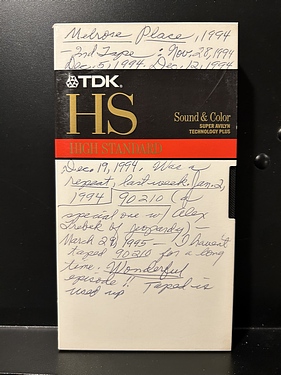 Melrose Place, 1994
- 2nd Tape : Nov. 28, 1994
Dec. 5, 1994, Dec. 12, 1994
TDK
HS
Sound & Color
SUPER AVILYN
TECHNOLOGY PLUS
HIGH STANDARD
Dec. 19, 1994. Was a
repeat, last week. Jan. 2,
1994 90210 (a
special one w/ Alex
Trebek of Jeopardy) -
March 29, 1995 - I haven't
taped 90210 for a long
time. Wonderful
episode!! Taped is
used up